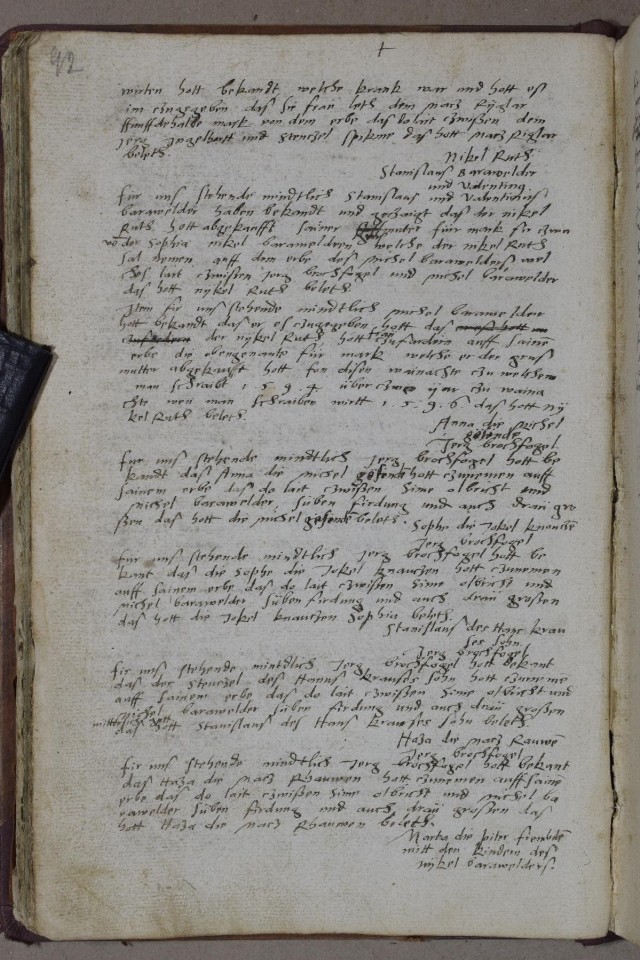 42
wirten hott bekandt welche krank war und hott esz
im czugegeben das sie frau leth dem Marz Ryglar
funff dehalbe mark von dem erbe das do lait czwiszen dem
Jerg Ingelhartt und Stenczel Spikme das hott Marz Riglar
beleth.
Nikel Ruth
Stanislaus Barawelder
und Valentinq
für uns stehende mindtlich Stanislaus und Valentinus
barawelder haben bekandt und geczaigt das der nikel
Ruth hott abgekaufft seiner guter für mark sie czwa
oder Sophia nikel barawelderen welche der nikel Ruth
sal nemen auff dem erbe des michel barawelders wel
ches lait czwiszen Jerg brochfogel und michel barawelder
das hott nykel Ruth beleth
Item für uns stehende mindtlich michel barawelder
hott bekandt das er es czugegeben hott das
der nykel Ruth hott czufodern auff saine
erbe die obengenante für mark welche er der gros
mutter abgekauft hott fon disen wainachte czu welchem
man schraibt 1.5.9.4. über czwe iyar czu waina
chte wen man schraiben wirtt 1.5.9.6 das hott ny
kel Ruth beleth.
Anna die michel
gosende
Jerg brochfogel
für uns stehende mindtlich Jerg brochfogel hott be
kandt das Anna die michel gosende hott czunemen auff
sainem erbe das do lait czwiszen Sime olbricht und
michel barawelder süben firdung und auch drai gro
szen das hott die michel gosende beleth.
Sophe die Jokel knauczē
Jerg brochfogel
für uns stehende mindtlich Jerg brochfogel hott be
kant das die Sophe die Jokel knauczen hott czunemen
auff sainem erbe das do lait czwiszen Sime olbricht und
michel barawelder süben firdung und auch drai groszen
das hott die Jokel knauczen Sophia beleth.
Stanislaus des Hans krau
ses sohn
Jerg brochfogel
für uns stehende mindtlich Jerg brochfogel hott bekant
das der Stenczel des Hanns krauses sohn hott czuneme
auff sainem erbe das do lait czwiszen Sime olbricht und
michel barawelder süben firdung und auch drai groszen
das hott Stanislaus des Hans krauses sohn beleth.
Haza die Marz Rauwē
Jerg brochfogel
für uns stehende mindtlich Jerg brochfogel hott bekant
das Haza die Marz Rhauwen hott czunemen auff saine
erbe das do lait czwiszen Sime olbricht und michil ba
rawelder süben firdung und auch drai groszen das
hott Haza die Marz Rhauwen beleth.
Marta die piter frembdē
mitt den kindern des
nykel barawelders.